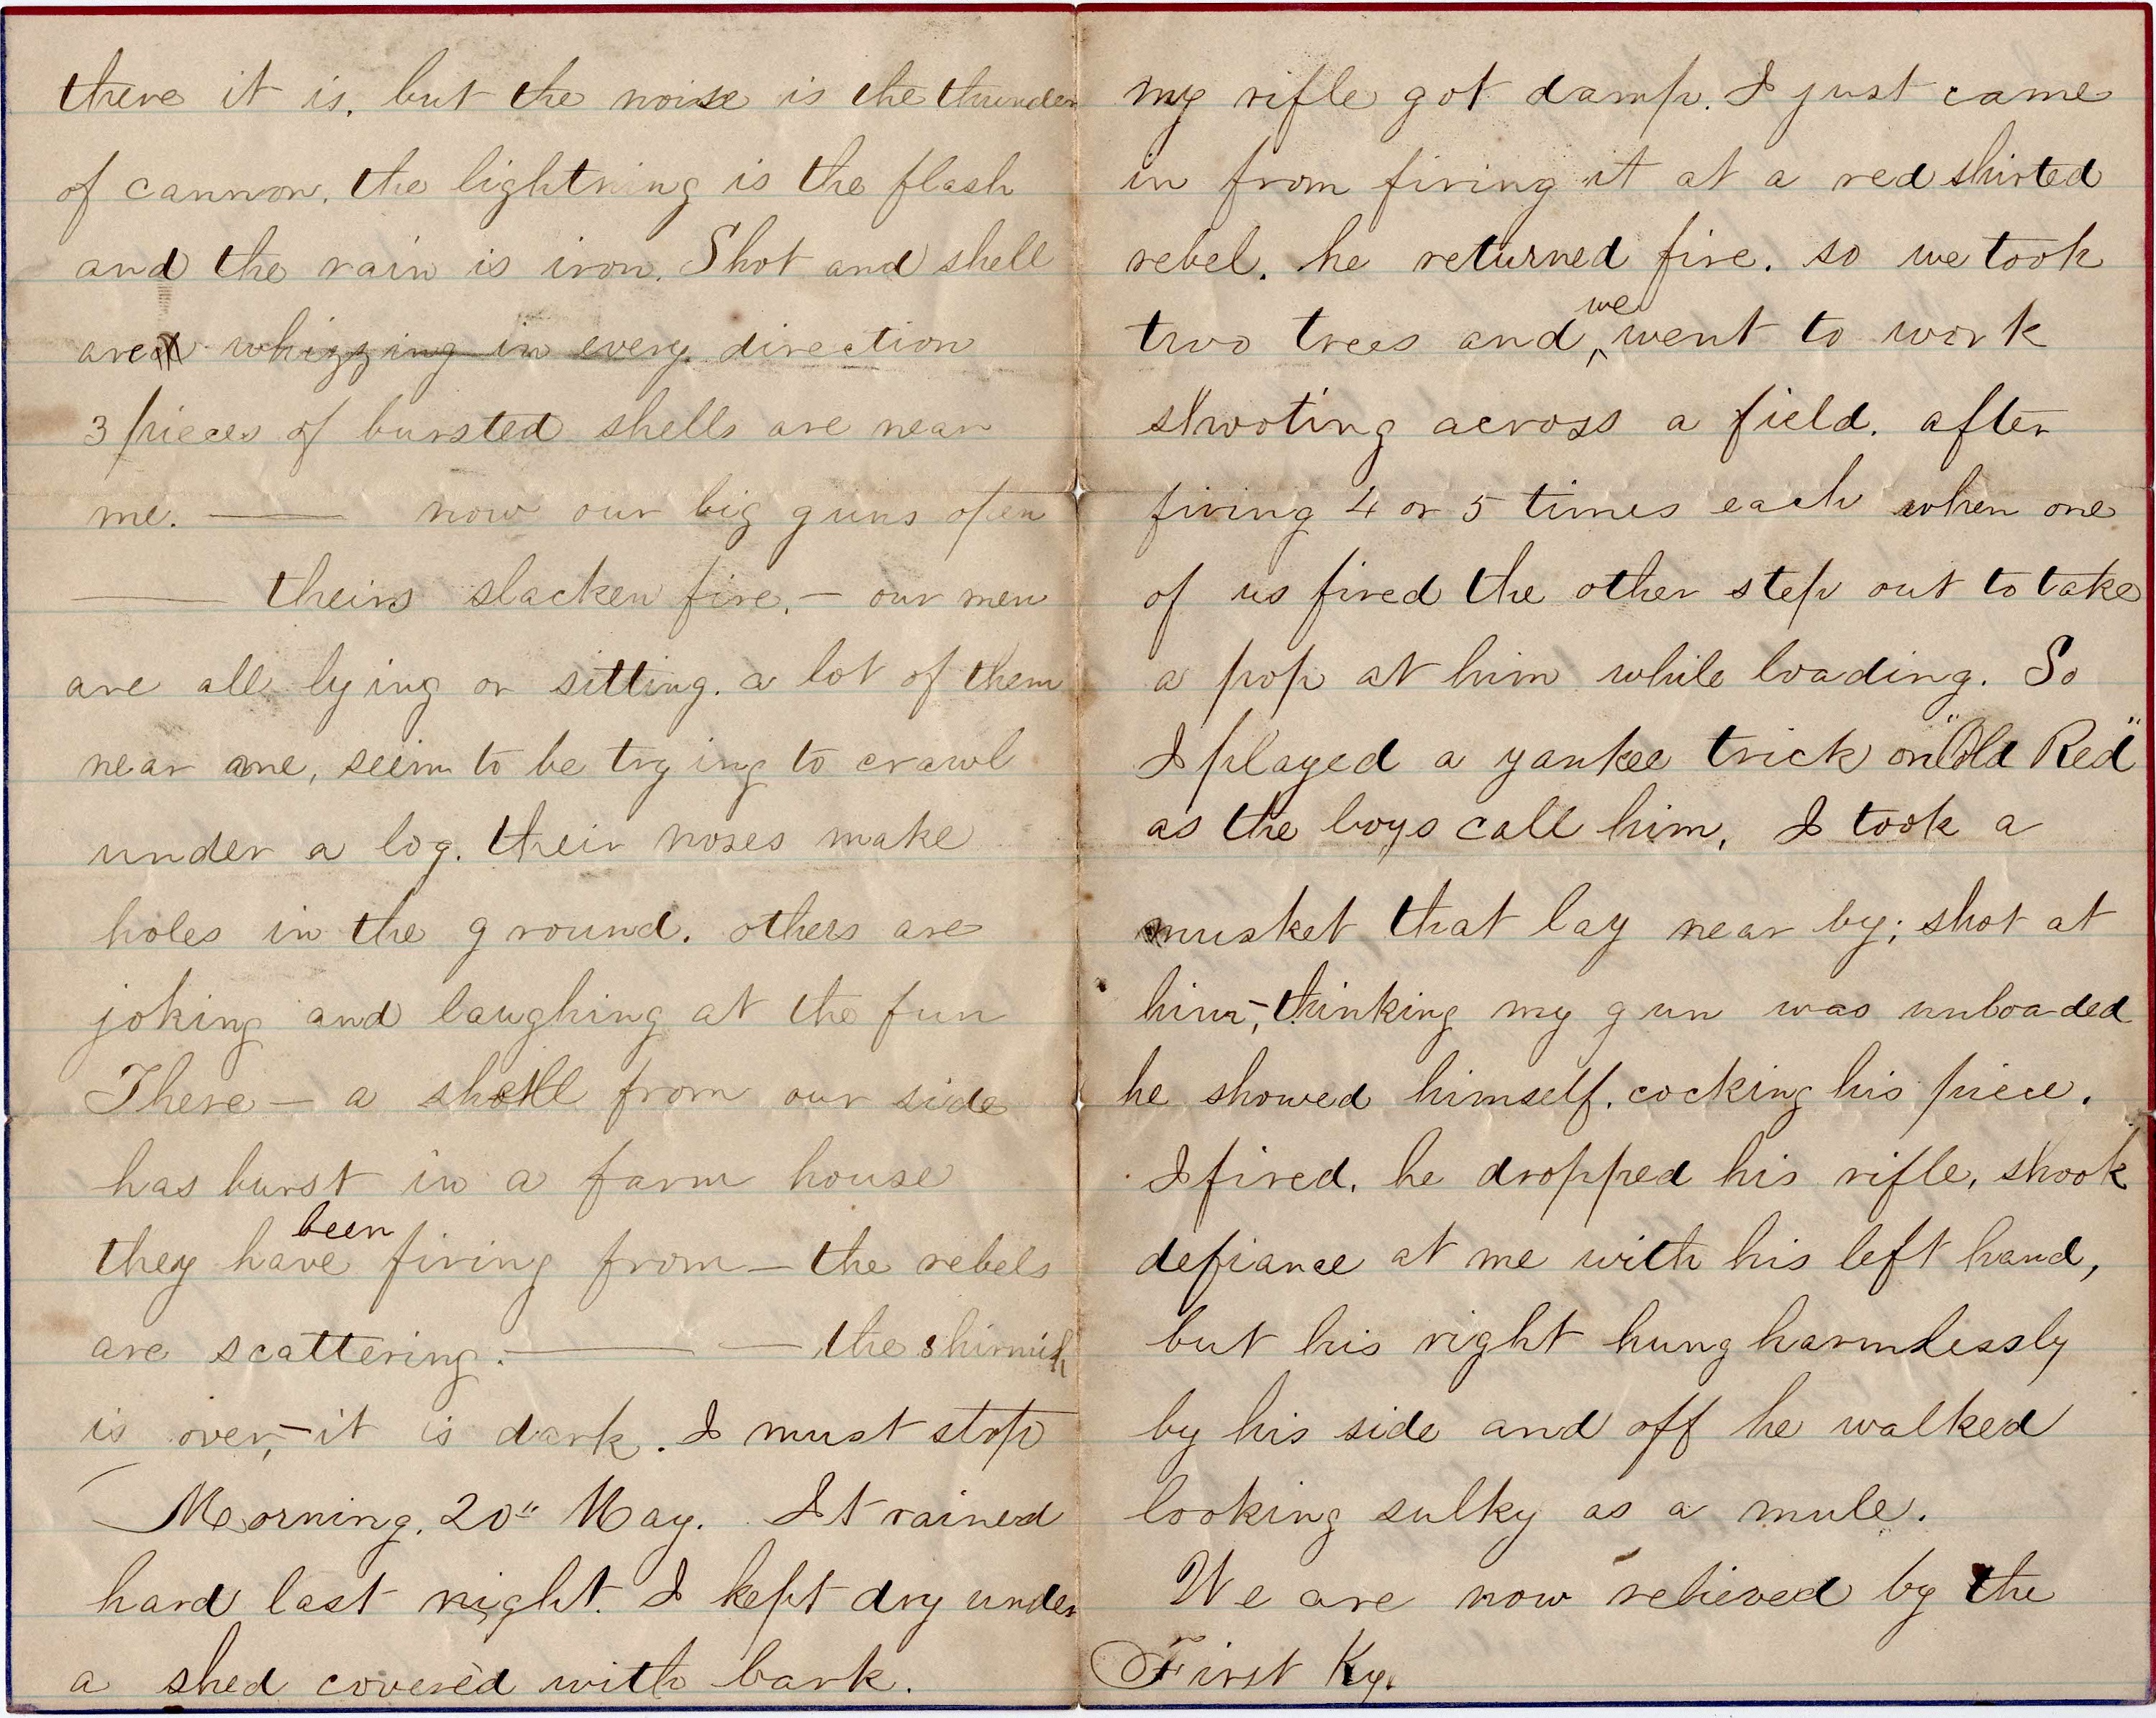 there it is. but the noise is the thunder
of cannon. the lightning is the flash
and the rain is iron. Shot and shell
are whizzing in every direction
3 pieces of bursted shells are near
me. — now our big guns open
— theirs slacken fire. — our men
are all lying or sitting. a lot of them
near me, seem to be trying to crawl
under a log. their noses make
holes in the ground. others are
joking and laughing at the fun
There — a shell from our side
has burst in a farm house
they have been firing from — the rebels
are scattering. — — the skirmish
is over, — it is dark. I must stop
Morning. 20" May. It rained
hard last night. I kept dry under
a shed covered with bark.
my rifle got damp. I just came
in from firing it at a red shirted
rebel. he returned fire. so we took
two trees and we went to work
shooting across a field. after
firing 4 or 5 times each when one
of us fired the other step out to take
a pop at him while loading. So
I played a yankee trick on "Old Red"
as the boys call him, I took a
musket that lay near by; shot at
him, — thinking my gun was unloaded
he showed himself. cocking his piece.
I fired. he dropped his rifle, shook
defiance at me with his left hand,
but his right hung harmlessly
by his side and off he walked
looking sulky as a mule.
We are now relieved by the
First Ky.